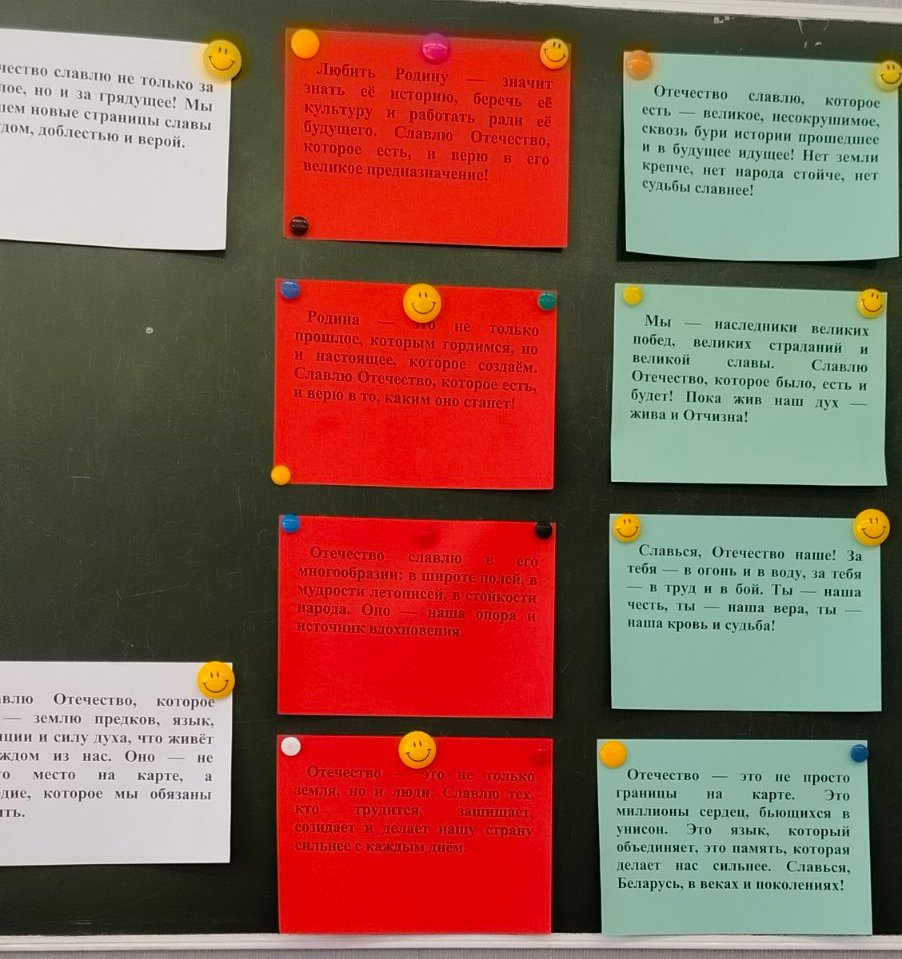 чество славлю не только за
лое, но и за грядущее! Мы
ем новые страницы славы
дом, доблестью и верой.
влю Отечество, которое
— землю предков, язык,
ции и силу духа, что живёт
ждом из нас. Оно — не
о место на карте, а
едие, которое мы обязаны
ить.
Любить Родину — значит
знать её историю, беречь её
культуру и работать ради её
будущего. Славлю Отечество,
которое есть, и верю в его
великое предназначение!
Родина — это не только
прошлое, которым гордимся, но
и настоящее, которое создаём.
Славлю Отечество, которое есть,
и верю в то, каким оно станет!
Отечество славлю в его
многообразии: в широте полей, в
мудрости летописей, в стойкости
народа. Оно — наша опора и
источник вдохновения.
Отечество — это не только
земля, но и люди. Славлю тех,
кто трудится, защищает,
созидает и делает нашу страну
сильнее с каждым днём.
Отечество славлю, которое
есть — великое, несокрушимое,
сквозь бури истории прошедшее
и в будущее идущее! Нет земли
крепче, нет народа стойче, нет
судьбы славнее!
Мы — наследники великих
побед, великих страданий и
великой славы. Славлю
Отечество, которое было, есть и
будет! Пока жив наш дух —
жива и Отчизна!
Славься, Отечество наше! За
тебя — в огонь и в воду, за тебя
— в труд и в бой. Ты — наша
честь, ты — наша вера, ты —
наша кровь и судьба!
Отечество — это не просто
границы на карте. Это
миллионы сердец, бьющихся в
унисон. Это язык, который
объединяет, это память, которая
делает нас сильнее. Славься,
Беларусь, в веках и поколениях!